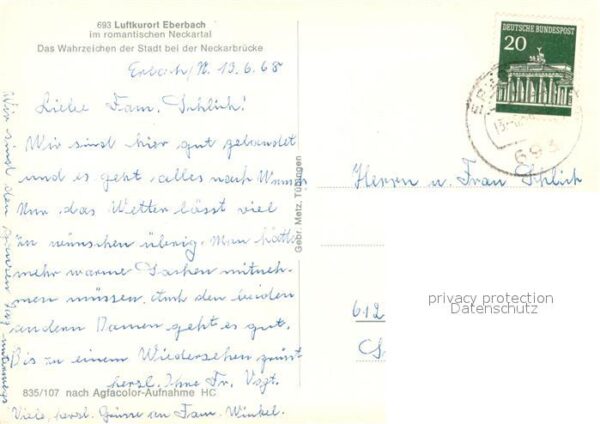 693 Luftkurort Eberbach
im romantischen Neckartal
Das Wahrzeichen der Stadt bei der Neckarbrücke
DEUTSCHE BUNDESPOST
20
693
Erbach/N. 13.6.68
Liebe Fam. Schlich!
Wir sind hier gut gelandet
und es geht alles nach Wunsch
Nur das Wetter lässt viel
zu wünschen übrig. Man hätte
mehr warme Sachen mitneh-
men müssen. Auch den beiden
andern Damen geht es gut.
Bis zu einem Wiedersehen grüsst
herzl. Ihre Fr. Vogt.
Viele, herzl. Grüsse an Fam. Winkel.
Wir sind den ganzen Tag unterwegs
Gebr. Metz, Tübingen
Herrn u. Frau Schlich
612
privacy protection
Datenschutz
835/107 nach Agfacolor-Aufnahme HC